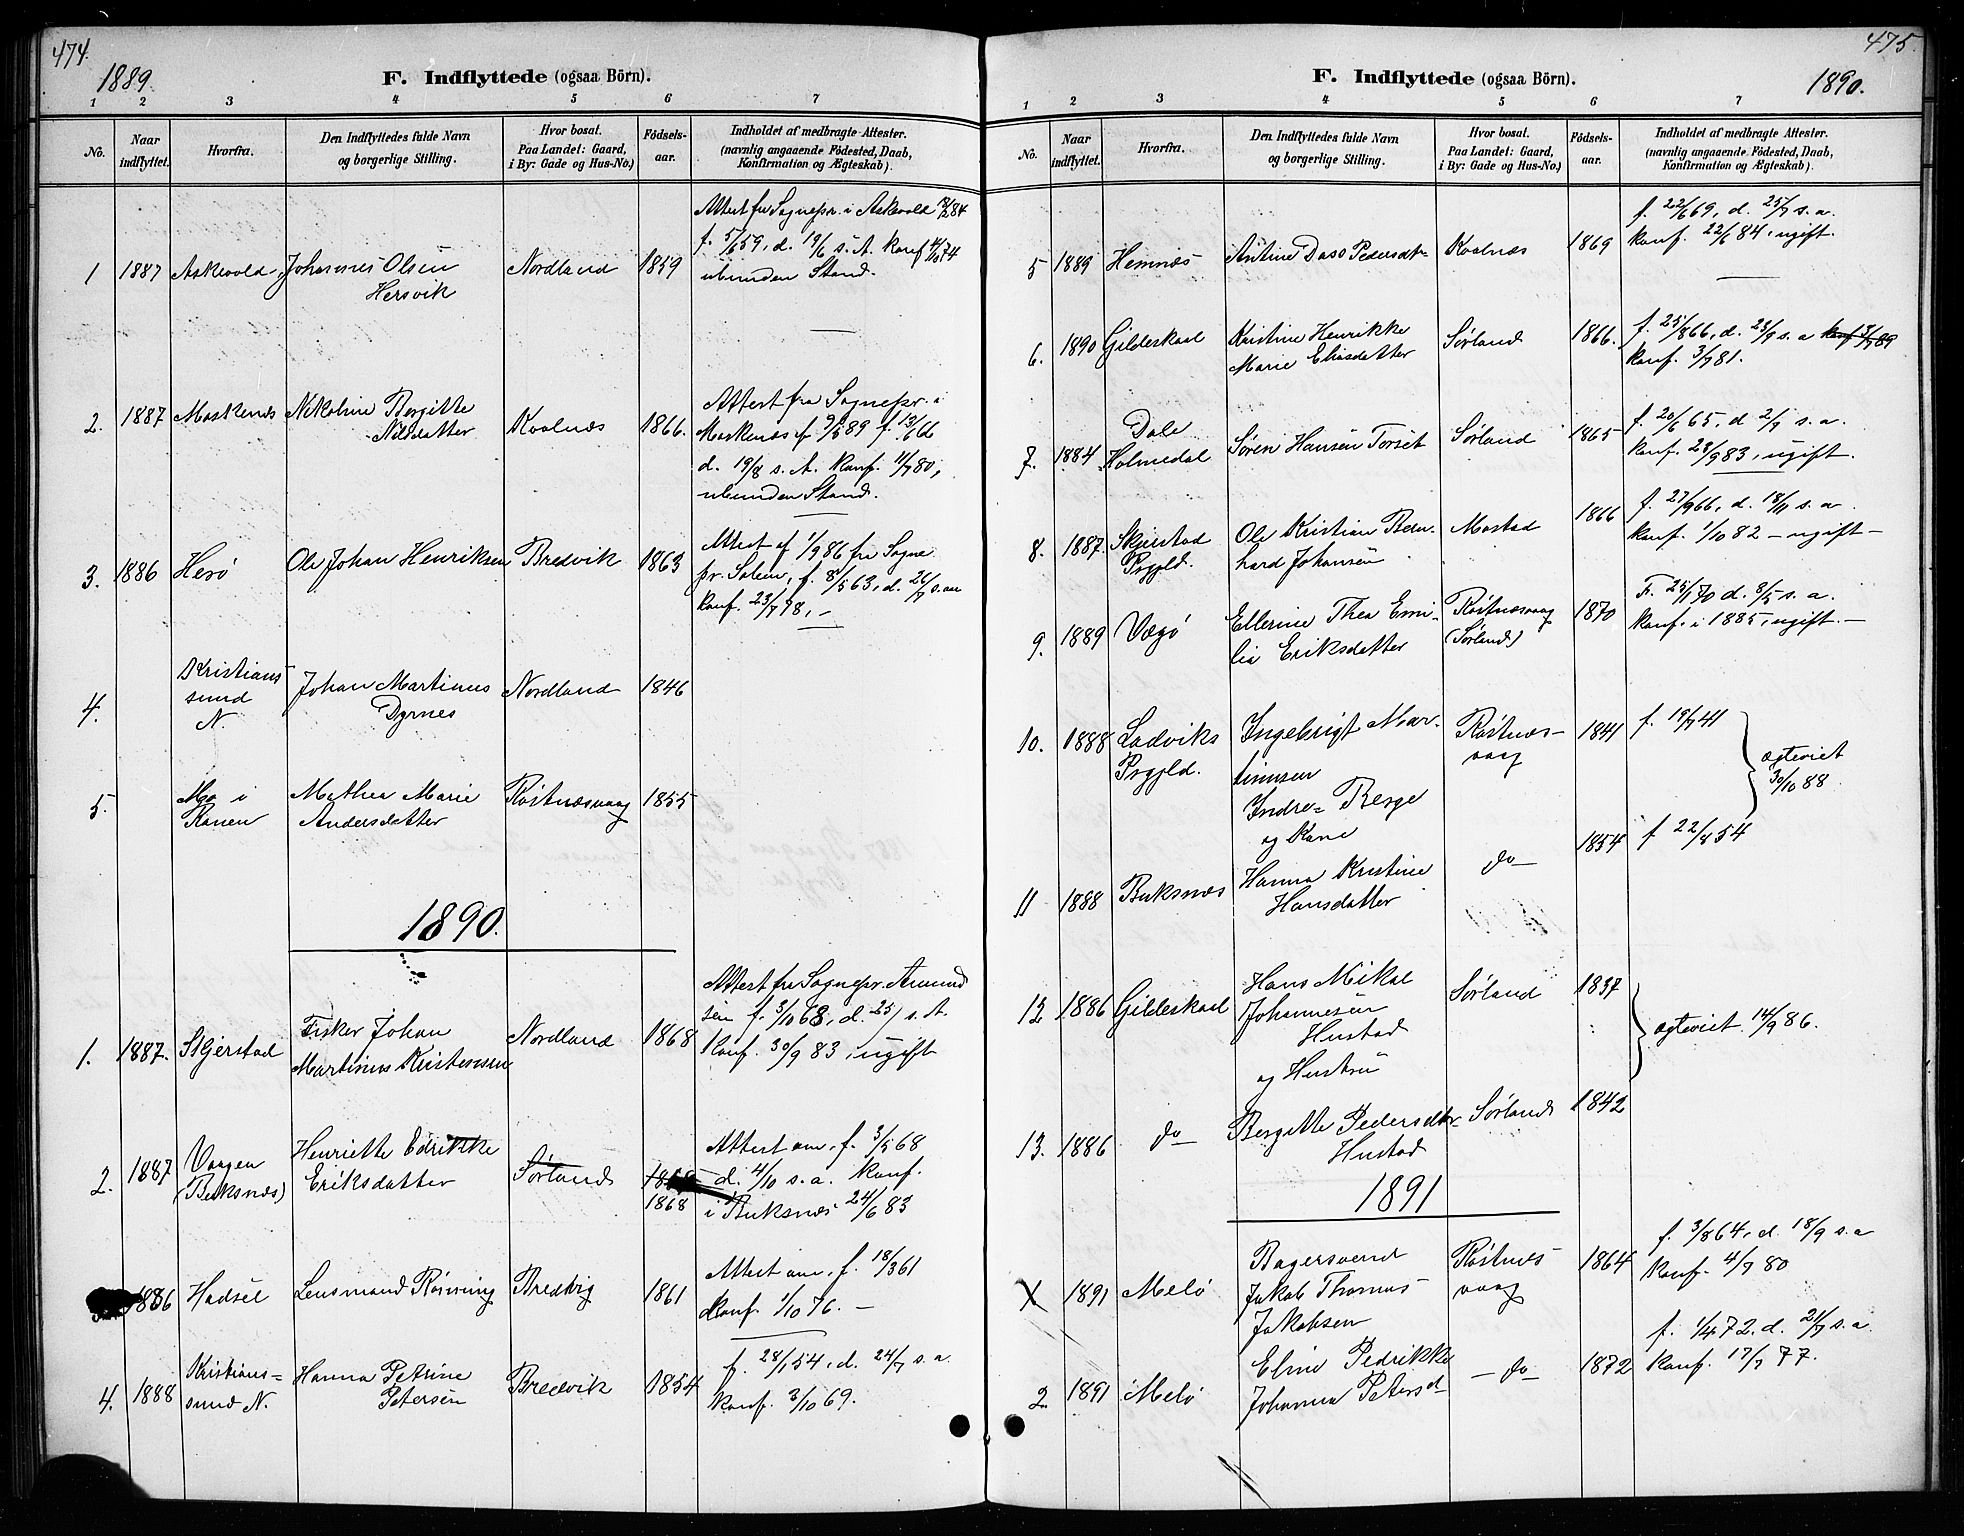 474.
1889.
F. Indflyttede (ogsaa Börn).
1 2 3 4 5 6 7
No.
Naar
indflyttet.
Hvorfra.
Den Indflyttedes fulde Navn
og borgerlige Stilling.
Hvor bosat.
Paa Landet: Gaard,
i By: Gade og Hus-No.)
Födsels-
aar.
Indholdet af medbragte Attester.
(navnlig angaaende Födested, Daab,
Konfirmation og Ægteskab).
1 1887 Askevold Johannes Olsen
Hersvik
Nordland 1859
Attest fra Sognepr. i Askevold
f. 5/6 59, d. 19/6 s. A. konf.
ubunden Stand.
2. 1887 Moskenæs Nikoline Bergitte
Nilsdatter
Kvalnæs 1866.
Attest fra Sognepr. i
Moskenæs af 9/5 89 f. 13/6 66
d. 19/8 s. A. konf. 11/7 80,
ubunden Stand.
3. 1886 Herö Ole Johan Henriksen Bredvik 1863
Attest af 1/9 86 fra Sogne
pr. f. 8/5 63, d. 26/7 s. aar
konf. 23/7 78, –
4. Kristians
sund
N.
Johan Martinus
Dyrnes
Nordland 1846
5 Mo i
Ranen
Mathea Marie
Andersdatter
Röstnæsvaag 1855
1890.
1. 1887. Skjerstad Fisker Johan
Martinus Kristensen
Nordland 1868
Attest fra Sognepr. Amund
sen f. 3/10 68, d. 25/ s. A.
konf. 30/9 83, ugift
2. 1887 Vaagen
(Buksnæs)
Henriette Edrikke
Eriksdatter
Sörland
1868
Attest om, f. 3/5 68
d. 4/10 s. a. konf.
i Buksnæs 24/6 83
1886 Hadsel Lensmand Rönning Bredvig 1861
Attest om, f. 18/3 61
konf. 1/10 76. –
4. 1888 Kristians=
sund N.
Hanna Petrine
Petersen
Bredvik 1854
f. 28/1 54, d. 24/7 s. a.
konf. 3/10 69.
475.
1890.
F. Indflyttede (ogsaa Börn).
1 2 3 4 5 6 7
No.
Naar
indflyttet.
Hvorfra.
Den Indflyttedes fulde Navn
og borgerlige Stilling.
Hvor bosat.
Paa Landet: Gaard,
i By: Gade og Hus-No.)
Födsels-
aar.
Indholdet af medbragte Attester.
(navnlig angaaende Födested, Daab,
Konfirmation og Ægteskab).
5 1889 Hemnæs Antine Pedersdt Kvalnæs 1869
f. 22/6 69, d. 25/7 s. a.
konf. 22/6 84, ugift.
6. 1890 Gildeskaal Kristine Henrikke
Marie Eliasdatter
Sörland 1866.
f. 25/8 66, d. 23/9 s. a
konf. 3/7 81.
7. 1884 Dale
Holmedal
Sören Hansen Torset Sörland 1865
f. 20/6 65, d 2/7 s. a.
konf. 23/9 83, ugift.
8. 1887. Skjerstad
Prgjld.
Ole Kristian Bern-
hard Johansen
Mostad 1866
f. 27/9 66, d. 18/11 s. a.
konf. 1/10 82 – ugift –
9. 1889 Vægö Ellerine Thea Emi-
lie Eriksdatter
Röstnæsvaag
(Sörland)
1870
F. 25/1 70 d. 8/5 s. a.
konf. i 1885, ugift. –
10. 1888 Ladviks
Prgjld.
Ingebrigt Mar-
tinusen
Indre= Berge
og Kone
Röstnæs-
vaag
1841 f. 19/7 41
ægteviet
30/10 88
11 1888 Buksnæs Hanna Kristine
Hansdatter
do 1854 f 22/8 54
12 1886 Gildeskaal Hans Mikal
Johannesen
Hustad
og Hustru
Sörland 1837
ægteviet 14/9 86.
13. 1886 do Bergitte Pedersdtr.
Hustad
Sörland 1842
1891
1891 Melö Bagersvend
Jakob Thomas
Jakobsen
Röstnæs
vaag
1864
f. 3/8 64, d. 18/9 s. a
konf. 4/7 80
2. 1891 Melö Eline Pedrikke
Johanna Petersd
– do – 1872
f. 1/4 72, d. 21/7 s. a.
konf. 17/7 77.